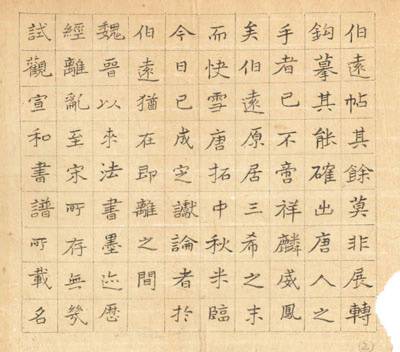 伯遠帖其餘莫非展轉
鈎摹其能確出唐人之
手者已不啻祥麟威鳳
矣伯遠原居三希之末
而快雪唐拓中秋米臨
今日已成定讞論者於
伯遠猶在即離之間
魏晉以來法書墨迹歷
經離亂至宋所存無幾
試觀宣和書譜所載名
(2)